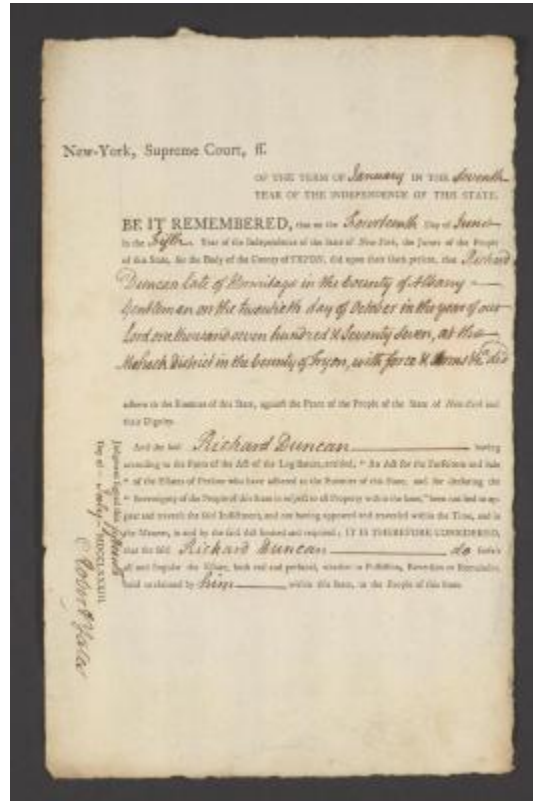 New-York, Supreme Court, ss.
OF THE TERM OF January IN THE Seventh
YEAR OF THE INDEPENDENCE OF THIS STATE.
BE IT REMEMBERED, that on the Fourteenth Day of June
in the Fifth Year of the Independence of the State of New-York, the Jurors of the People
of this State, for the Body of the County of TRYON, did upon their Oath present, that Richard
Duncan Late of Hermitage in the County of Albany
Gentleman on the twentieth day of October in the year of our
Lord one thousand seven hundred & Seventy Seven, at the
Mohock District in the County of Tryon, with force & Arms &c. did
adhere to the Enemies of this State, against the Peace of the People of the State of New-York and
their Dignity.
And the said Richard Duncan having
according to the Form of the Act of the Legislature, entitled, " An Act for the Forfeiture and Sale
" of the Estates of Persons who have adhered to the Enemies of this State, and for declaring the
" Sovereignty of the People of this State in respect to all Property within the same," been notified to ap-
pear and traverse the said Indictment, and not having appeared and traversed within the Time, and in
the Manner, in and by the said Act limited and required; IT IS THEREFORE CONSIDERED,
that the said Richard Duncan do forfeit
all and singular the Estate, both real and personal, whether in Possession, Reversion or Remainder,
held or claimed by him within this State, to the People of this State.
Judgment signed this fifteenth
Day of July MDCCLXXXIII.
Robert Yates